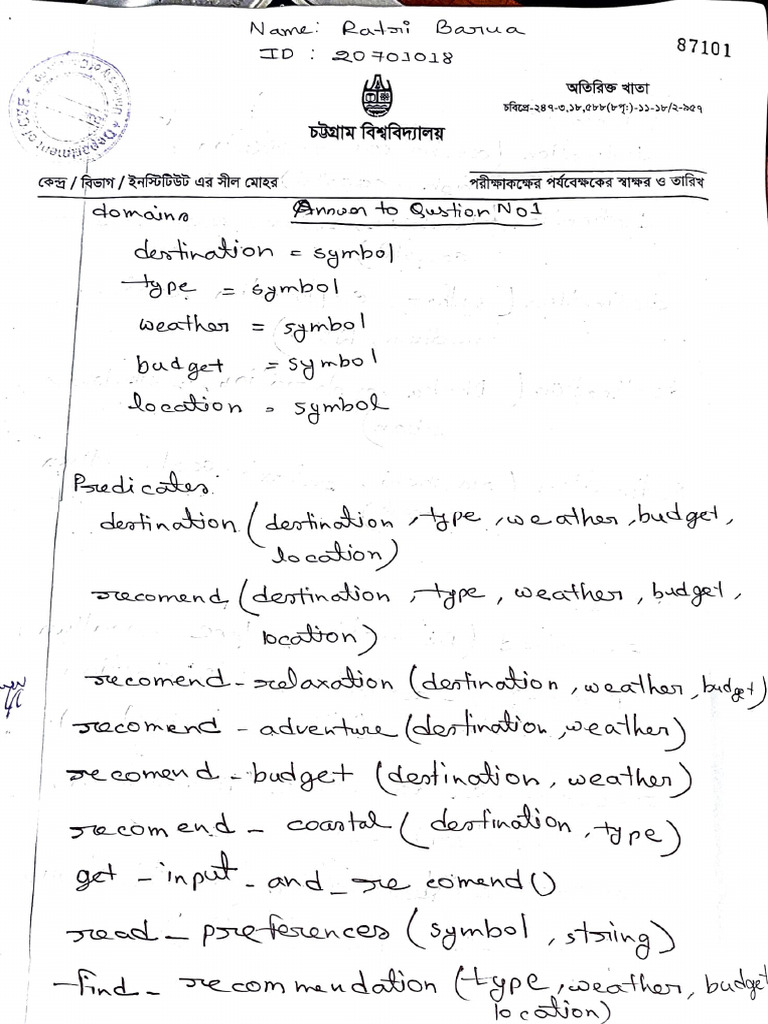 Name: Ratri Barua
ID : 20701018
87101
অতিরিক্ত খাতা
চবিপ্রে-২৪৭-৩,১৮,৫৮৮(৮পৃ:)-১১-১৮/২-৯৫৭
চট্টগ্রাম বিশ্ববিদ্যালয়
Department of CSE
কেন্দ্র / বিভাগ / ইনস্টিটিউট এর সীল মোহর
পরীক্ষাকক্ষের পর্যবেক্ষকের স্বাক্ষর ও তারিখ
domains
Answer to Qustion No 1
destination = symbol
type = symbol
weather = symbol
budget = symbol
location = symbol
Predicates:
destination (destination, type, weather, budget,
location)
recomend (destination, type, weather, budget,
location)
recomend-relaxation (destination, weather, budget)
recomend - adventure (destination, weather)
recomend - budget (destination, weather)
recomend - coastal (destination, type)
get - input - and _ recomend ()
read - preferences (symbol, string)
find - recommendation (type, weather, budget
location)